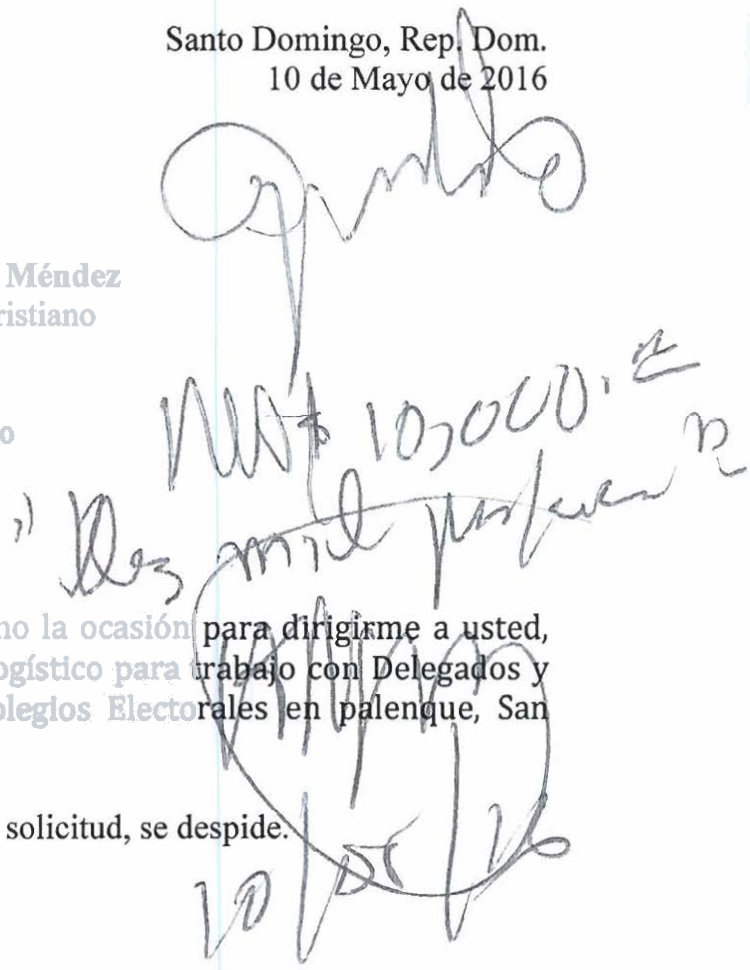 Santo Domingo, Rep. Dom.
10 de Mayo de 2016
Méndez
ristiano
o
RD$ 10,000.00
"Diez mil pesos
no la ocasión para dirigirme a usted,
ogístico para trabajo con Delegados y
olegios Electorales en palenque, San
solicitud, se despide.
10/05/16